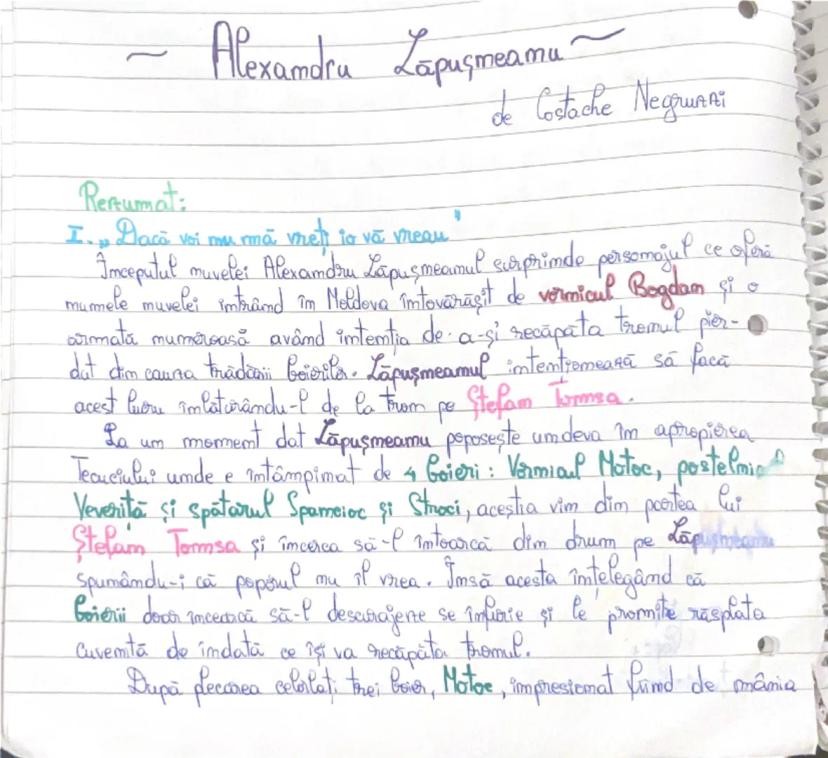 ~ Alexandru Lăpușneanu ~
de Costache Negruzzi
Rezumat:
I. „Dacă voi nu mă vreți io vă vreau"
Începutul nuvelei Alexandru Lăpușneanul surprinde personajul ce oferă
numele nuvelei intrând în Moldova întovărășit de vornicul Bogdan și o
armată numeroasă având intenția de a-și recăpăta tronul pier-
dut din cauza trădării boierilor. Lăpușneanul intenționează să facă
acest lucru înlăturându-l de la tron pe Ștefan Tomsa.
La un moment dat Lăpușneanu poposește undeva în apropierea
Tecuciului unde e întâmpinat de 4 boieri: Vornicul Motoc, postelnic
Veveriță și spătarul Spancioc și Stroici, aceștia vin din partea lui
Ștefan Tomsa și încerca să-l întoarcă din drum pe Lăpușneanu
spunându-i că poporul nu îl vrea. Însă acesta înțelegând că
boierii doar încearcă să-l descurajeze se înfurie și le promite răsplata
cuvenită de îndată ce își va recăpăta tronul.
După plecarea celorlați trei boier, Motoc, impresionat fiind de mânia